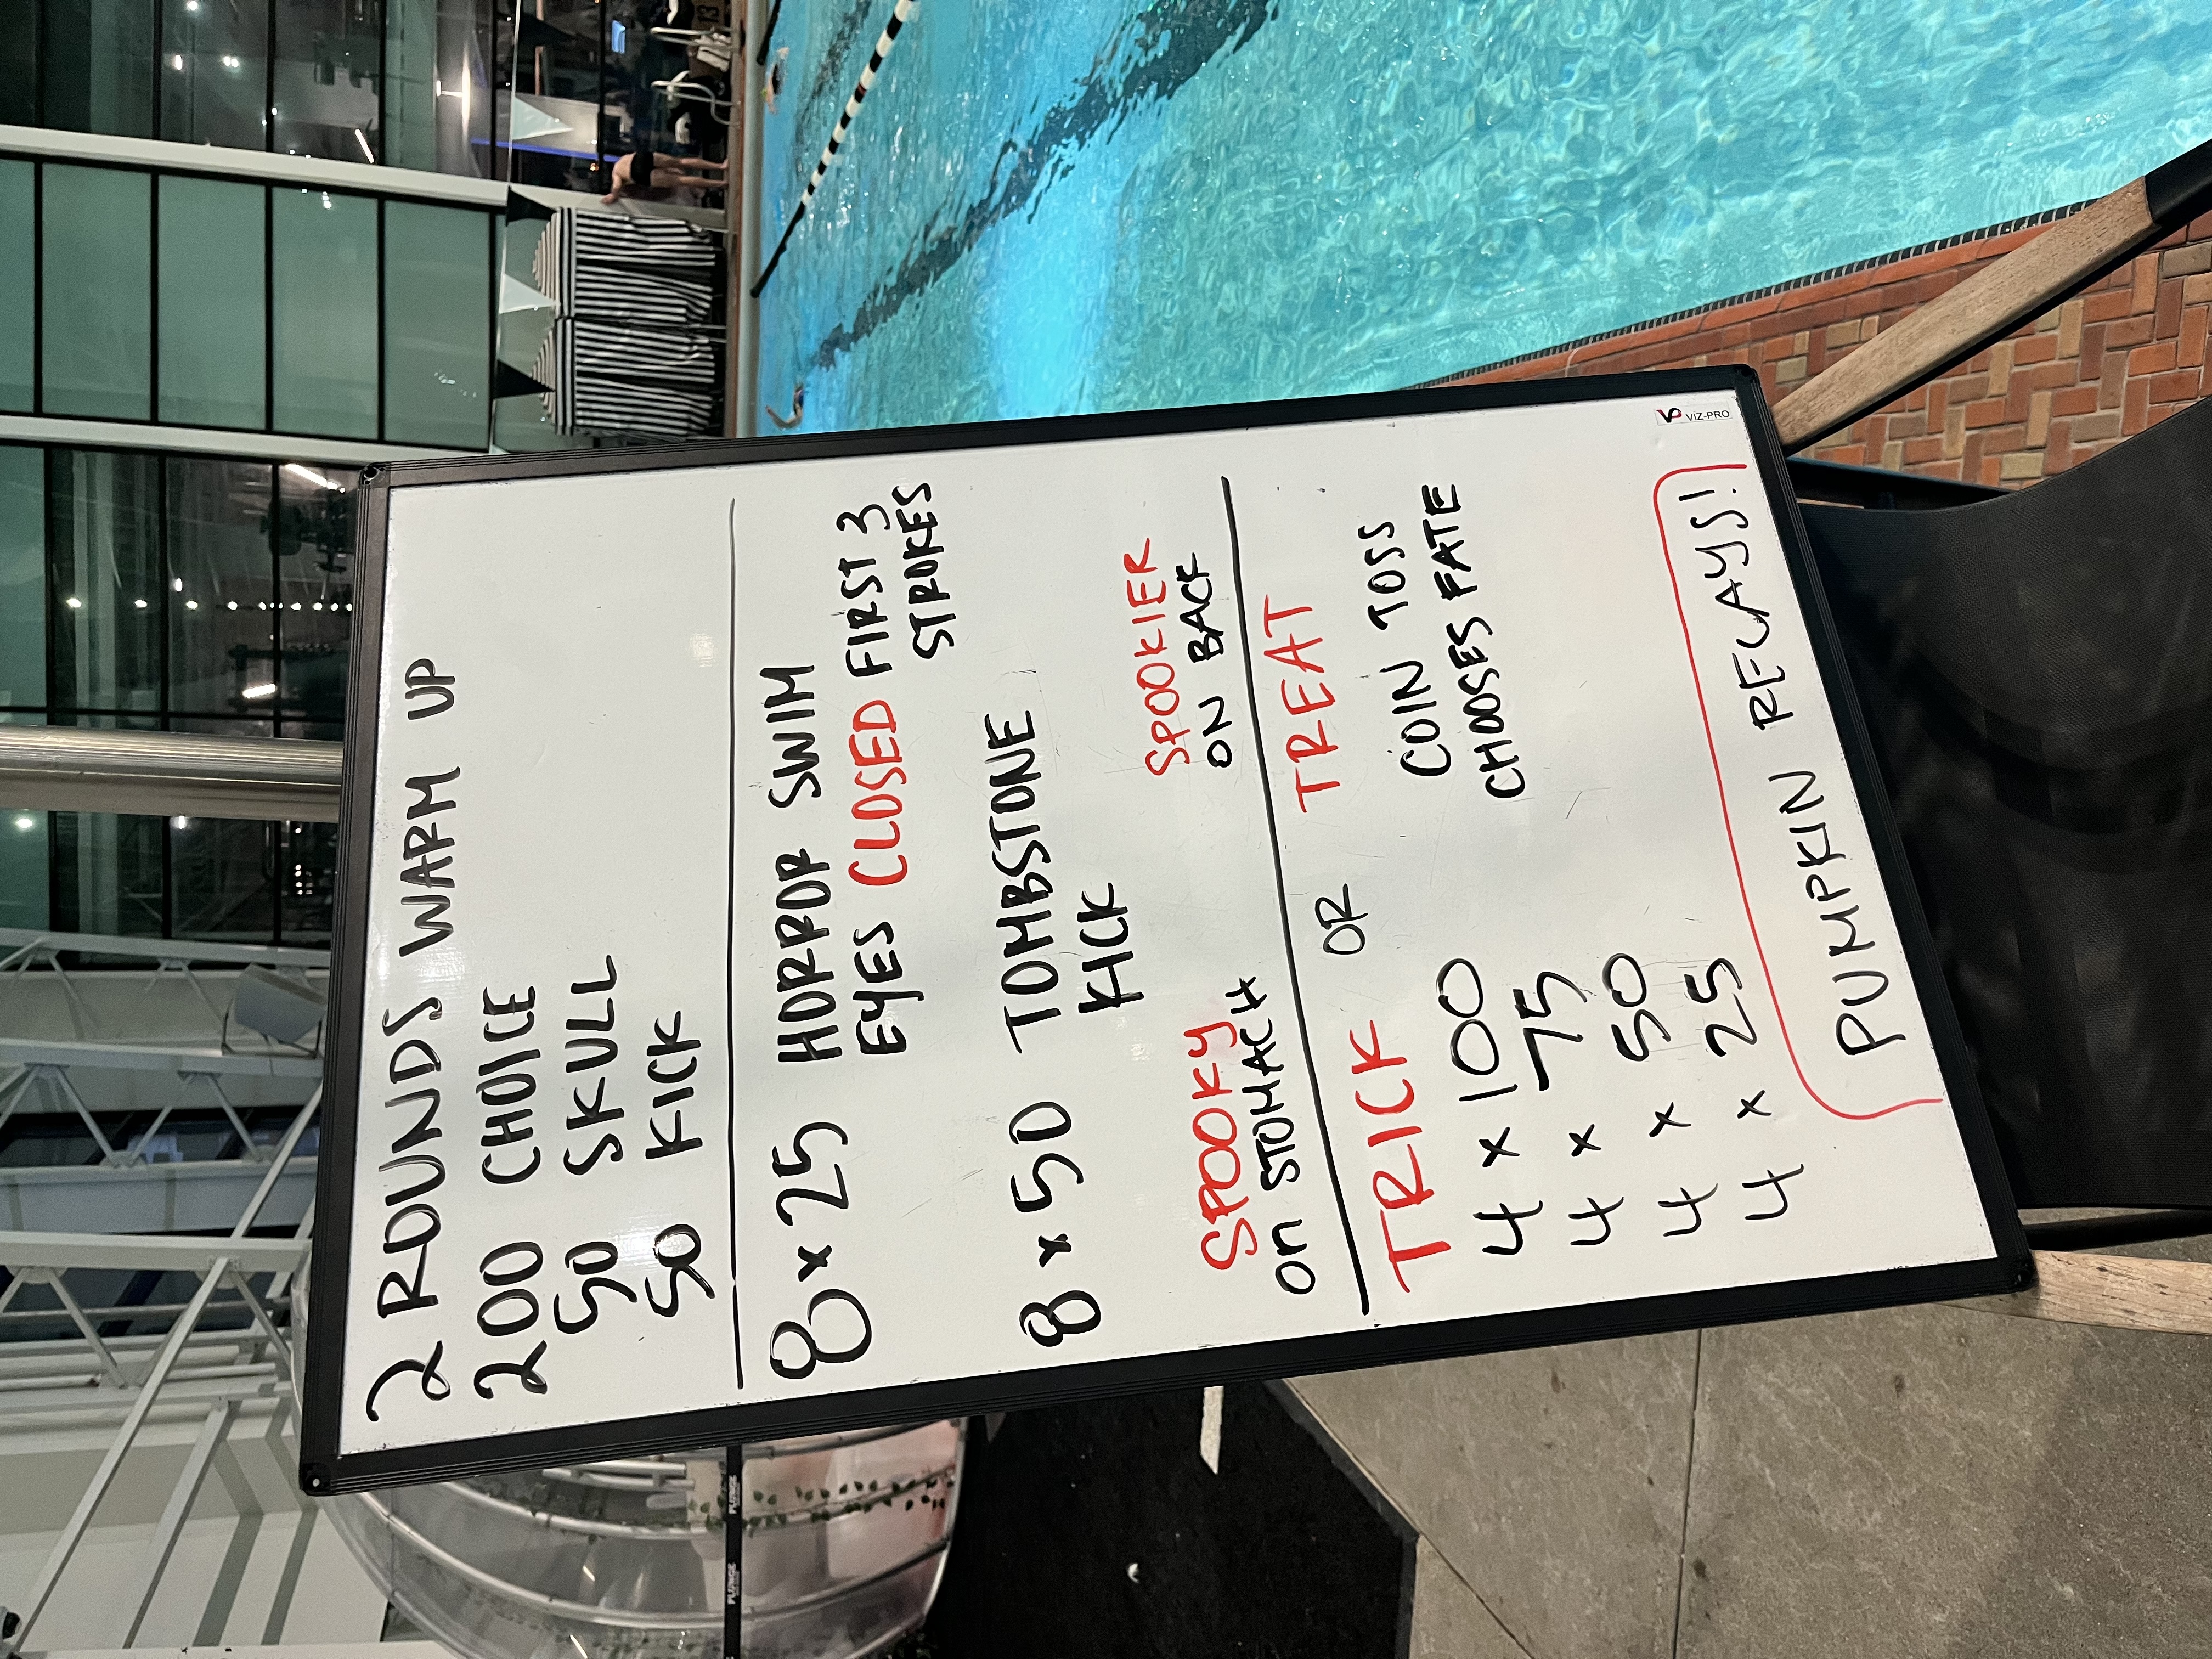 2 ROUNDS WARM UP
200 CHOICE
50 SKULL
50 KICK
8 x 25 HORROR SWIM
EYES CLOSED FIRST 3
STROKES
8 x 50 TOMBSTONE
KICK
SPOOKY SPOOKIER
ON STOMACH ON BACK
TRICK OR TREAT
4 x 100 COIN TOSS
4 x 75 CHOOSES FATE
4 x 50
4 x 25
PUMPKIN RELAYS!
VIZ-PRO
PLUNGE
PLUNGE
13